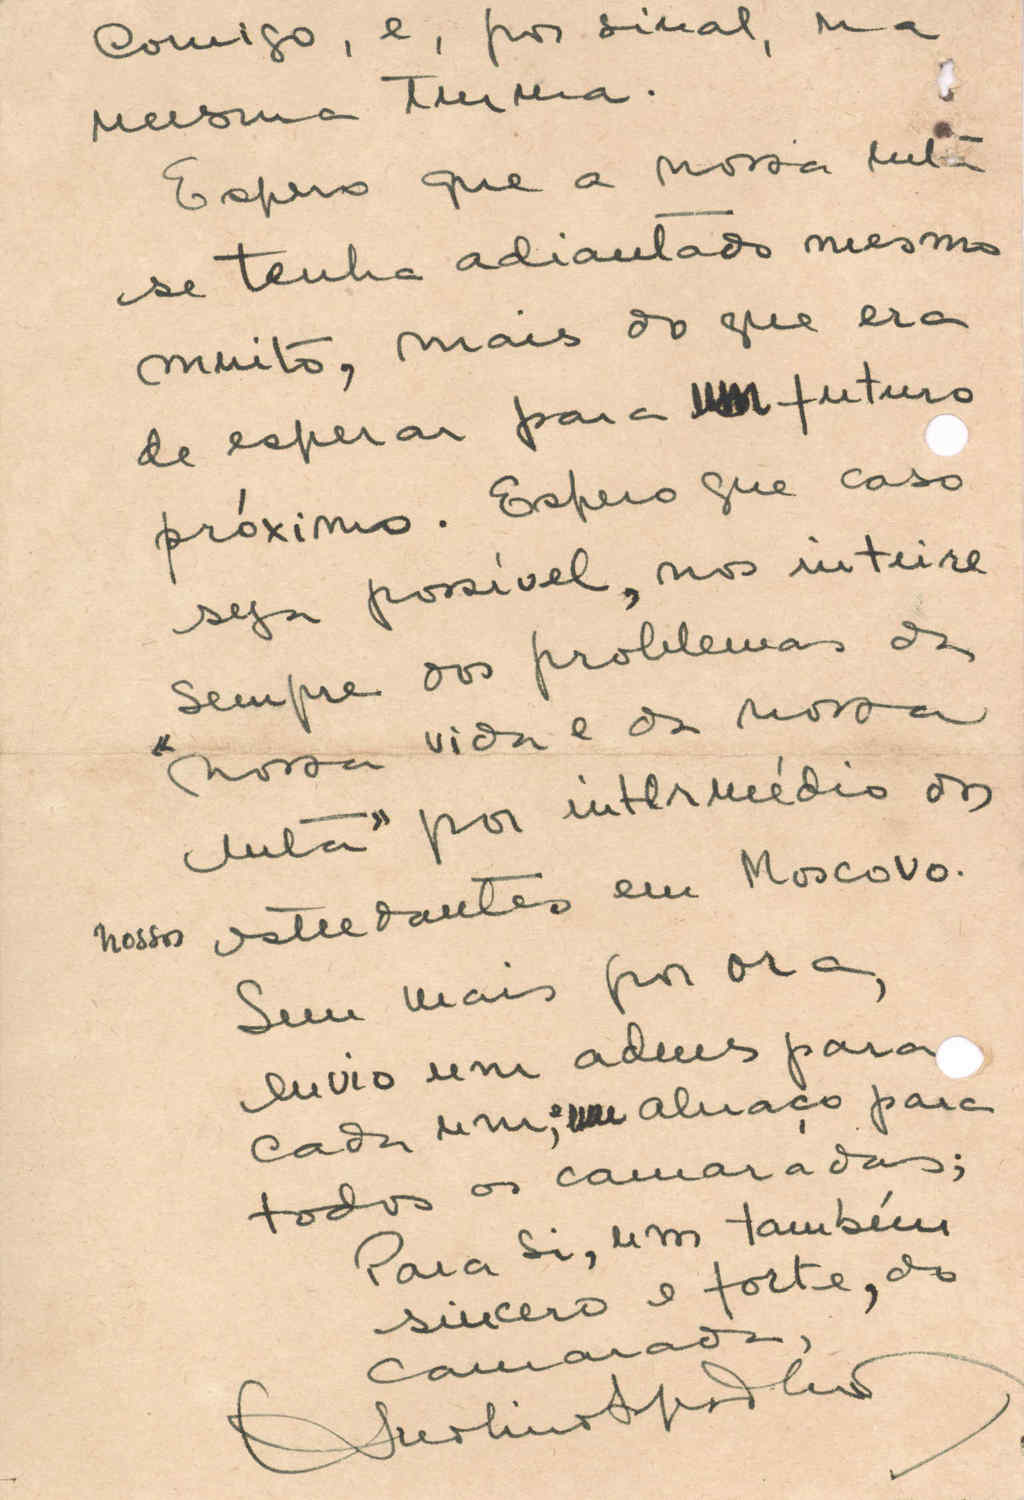 Comigo, e, por sinal, na
mesma turma.
Espero que a nossa luta
se tenha adiantado mesmo
muito, mais do que era
de esperar para um futuro
próximo. Espero que caso
seja possível, nos inteire
sempre dos problemas da
"nossa vida e da nossa
luta" por intermédio dos
nossos estudantes em Moscovo.
Sem mais por ora,
envio um adeus para
cada um; abraço para
todos os camaradas;
Para si, um também
sincero e forte, do
camarada,